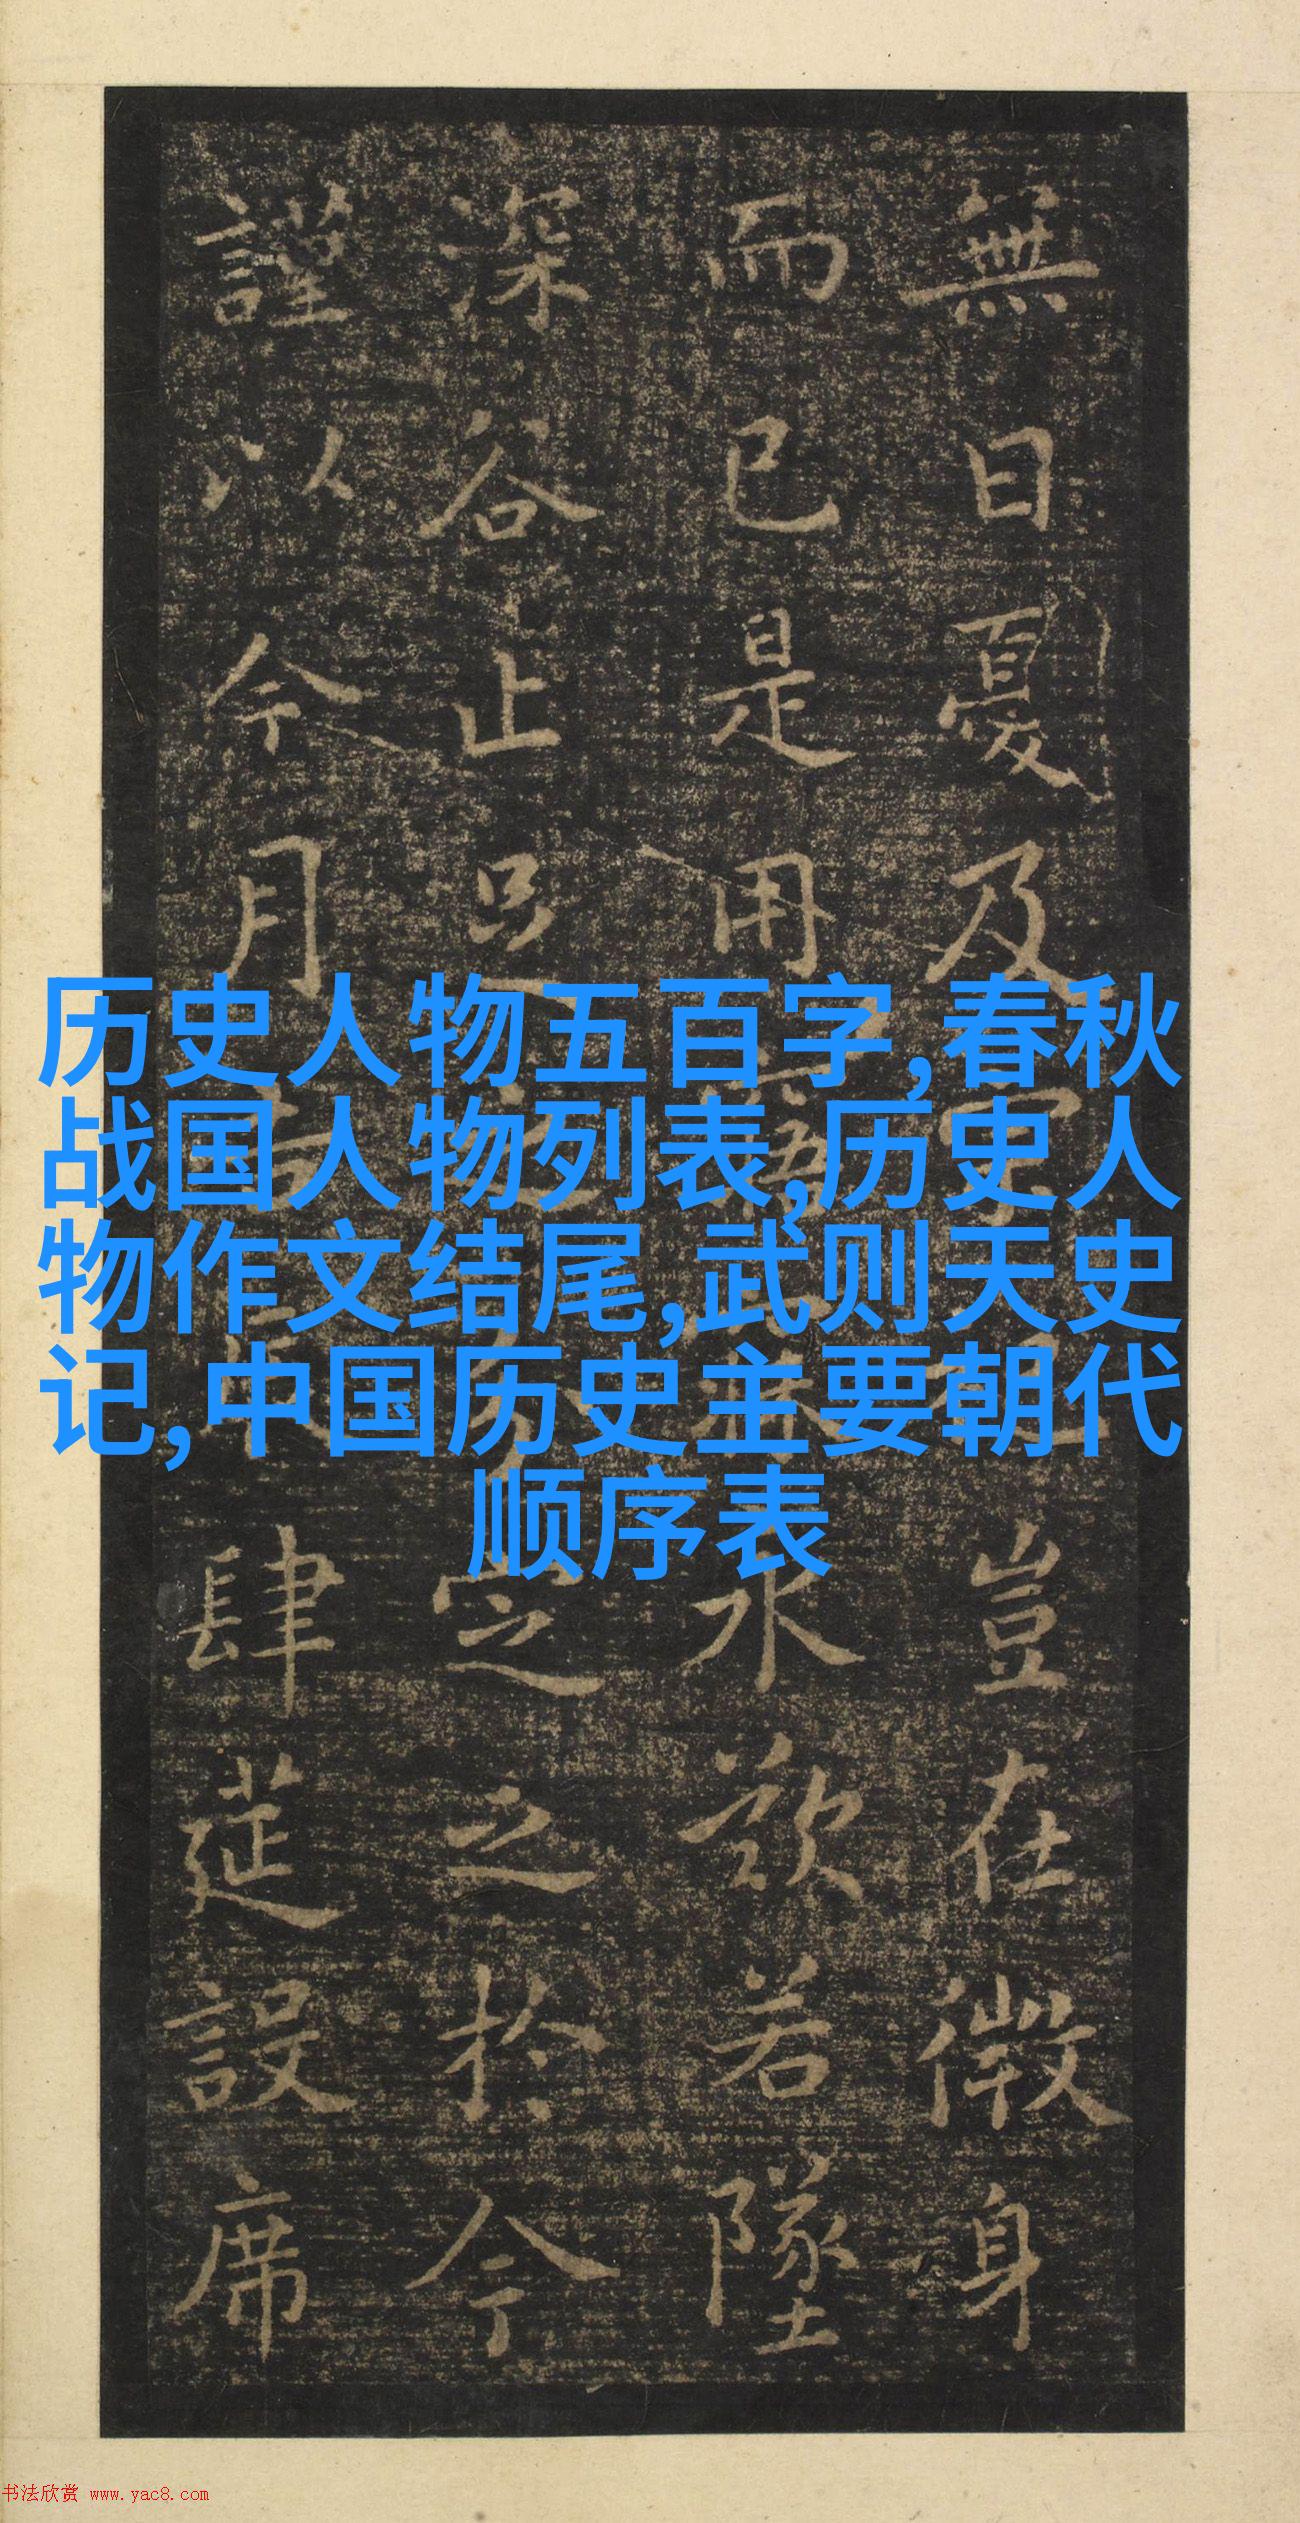 無日憂及宗祀豈在微身
而已是用寤寐永歎若墜
深谷止足之分定之於今
謹以今月吉辰肆筵設席
历史人物五百字,春秋
战国人物列表,历史人
物作文结尾,武则天史
记,中国历史主要朝代
顺序表
书法欣赏 www.yac8.com